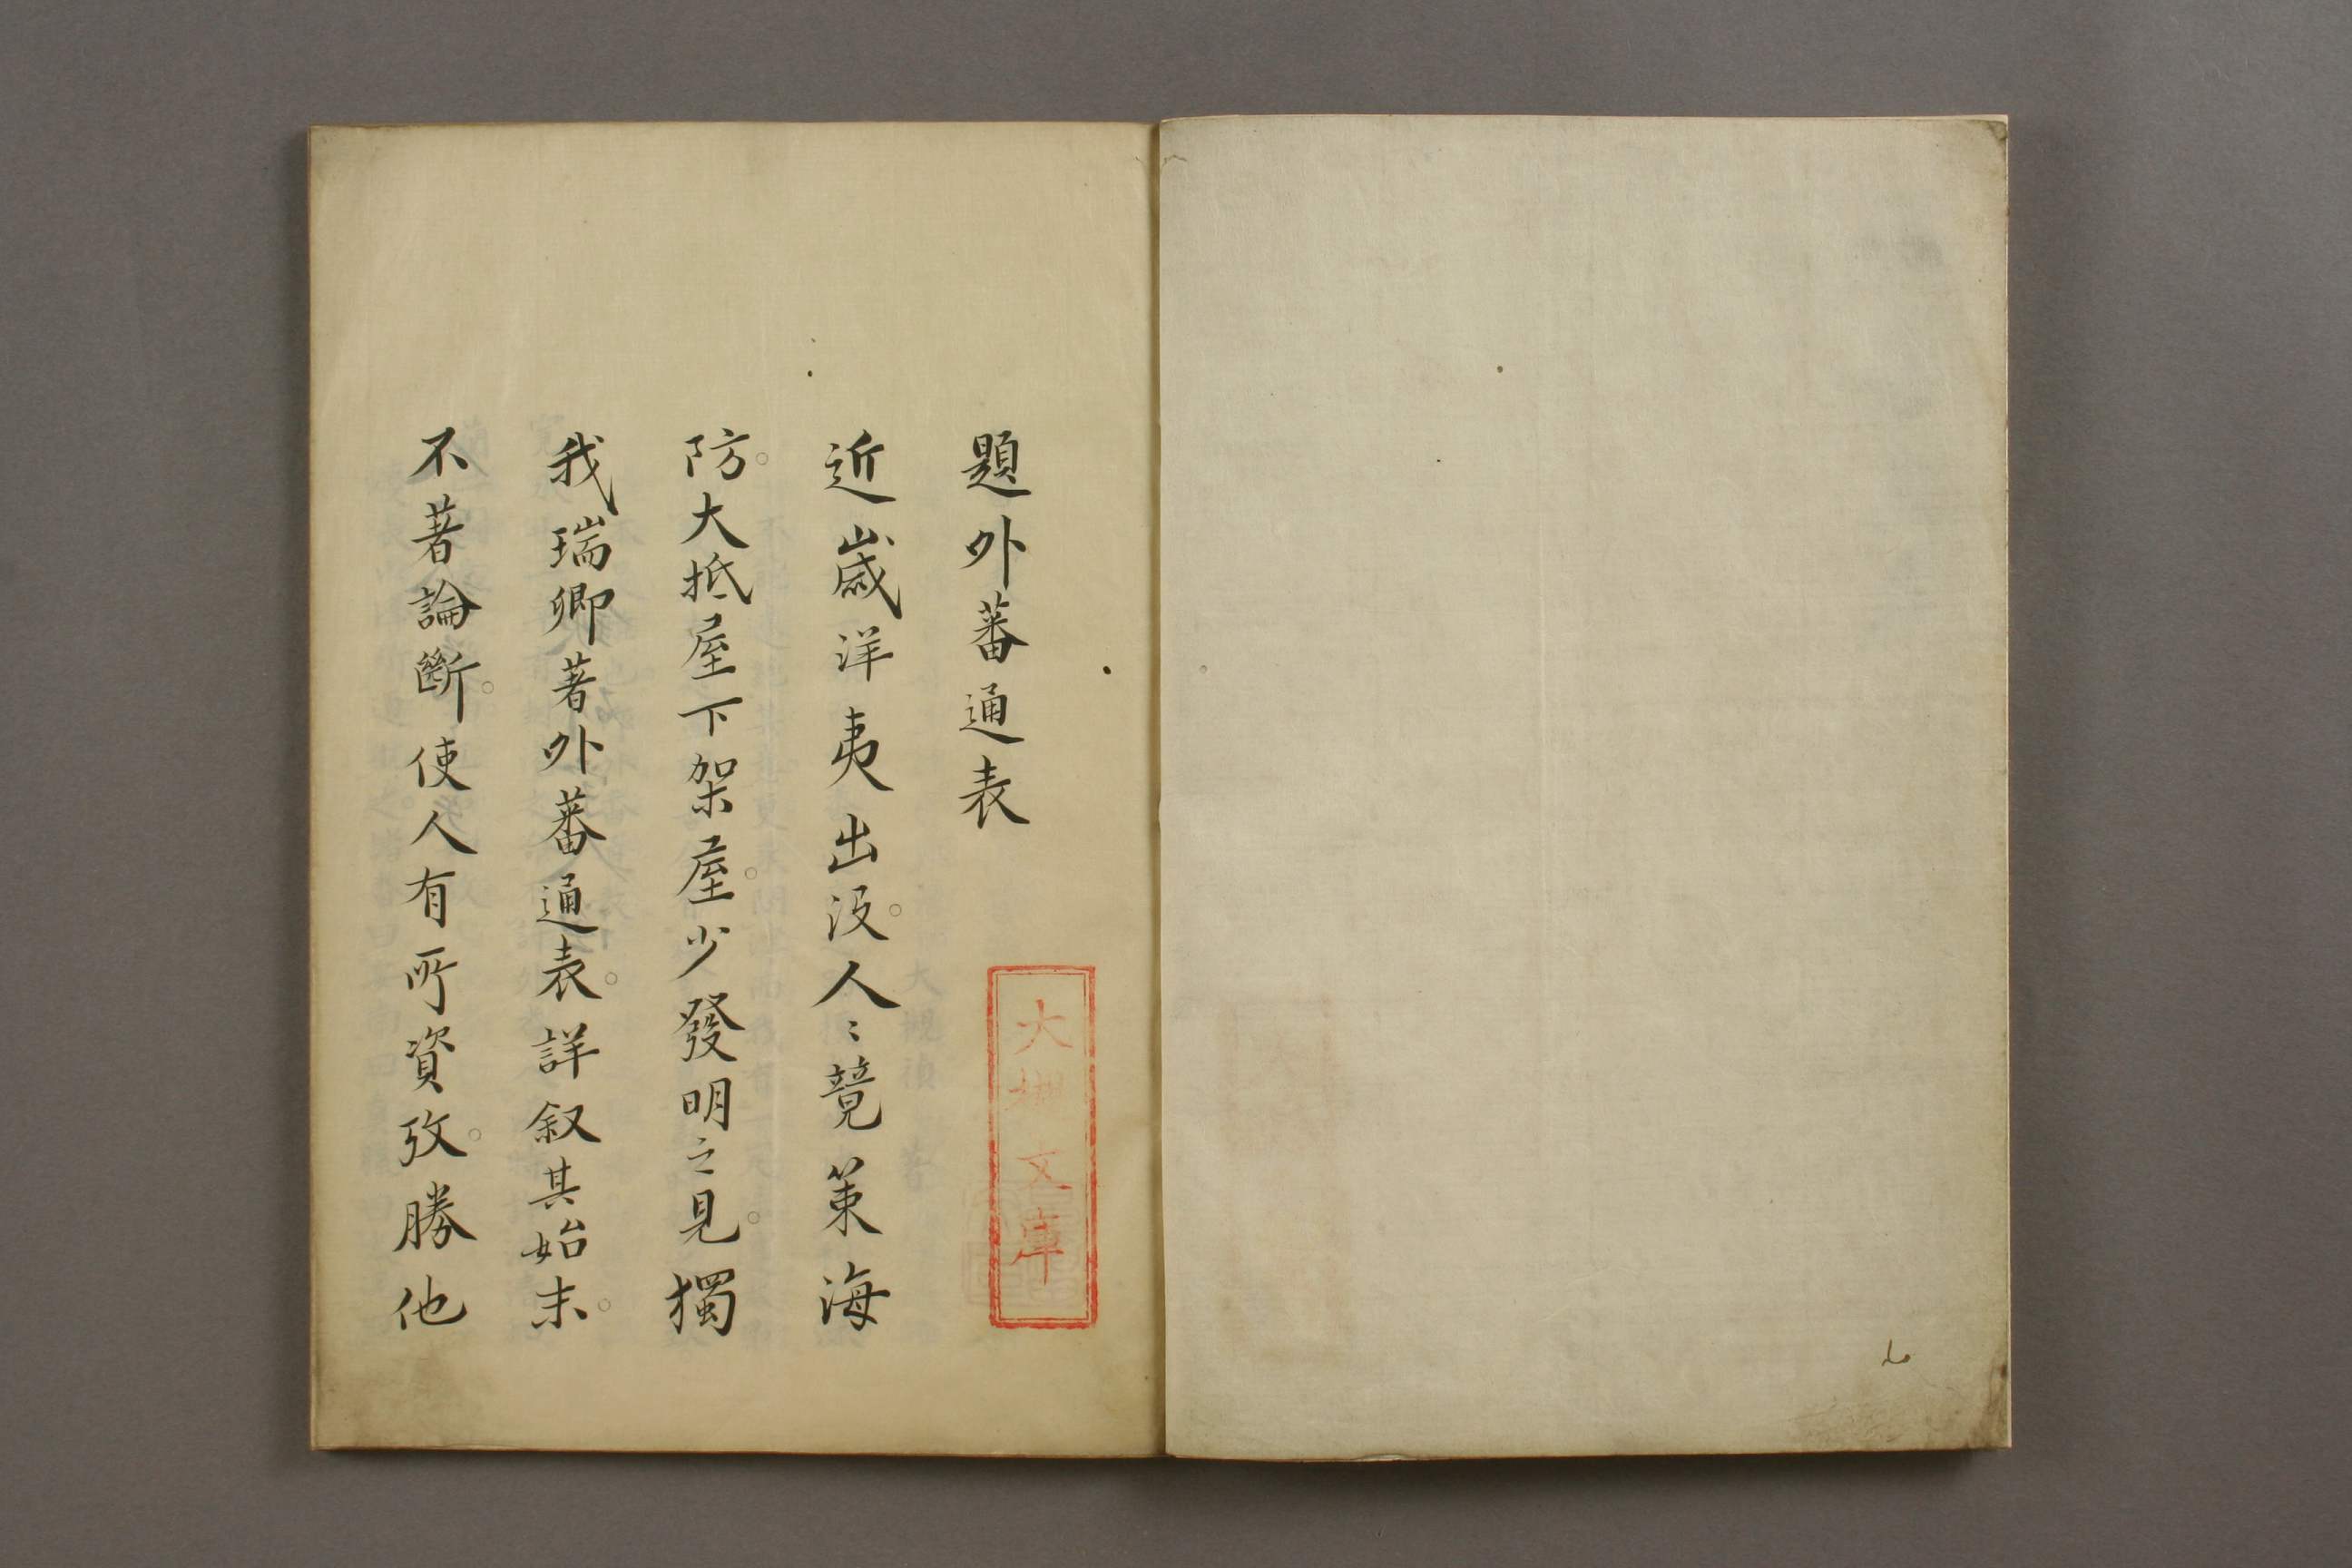 題外蕃通表
近歲洋夷出没。人〻競策海
防。大抵屋下架屋。少發明之見。獨
我瑞卿著外蕃通表。詳叙其始末。
不著論斷。使人有所資攷。勝他
大槻文庫